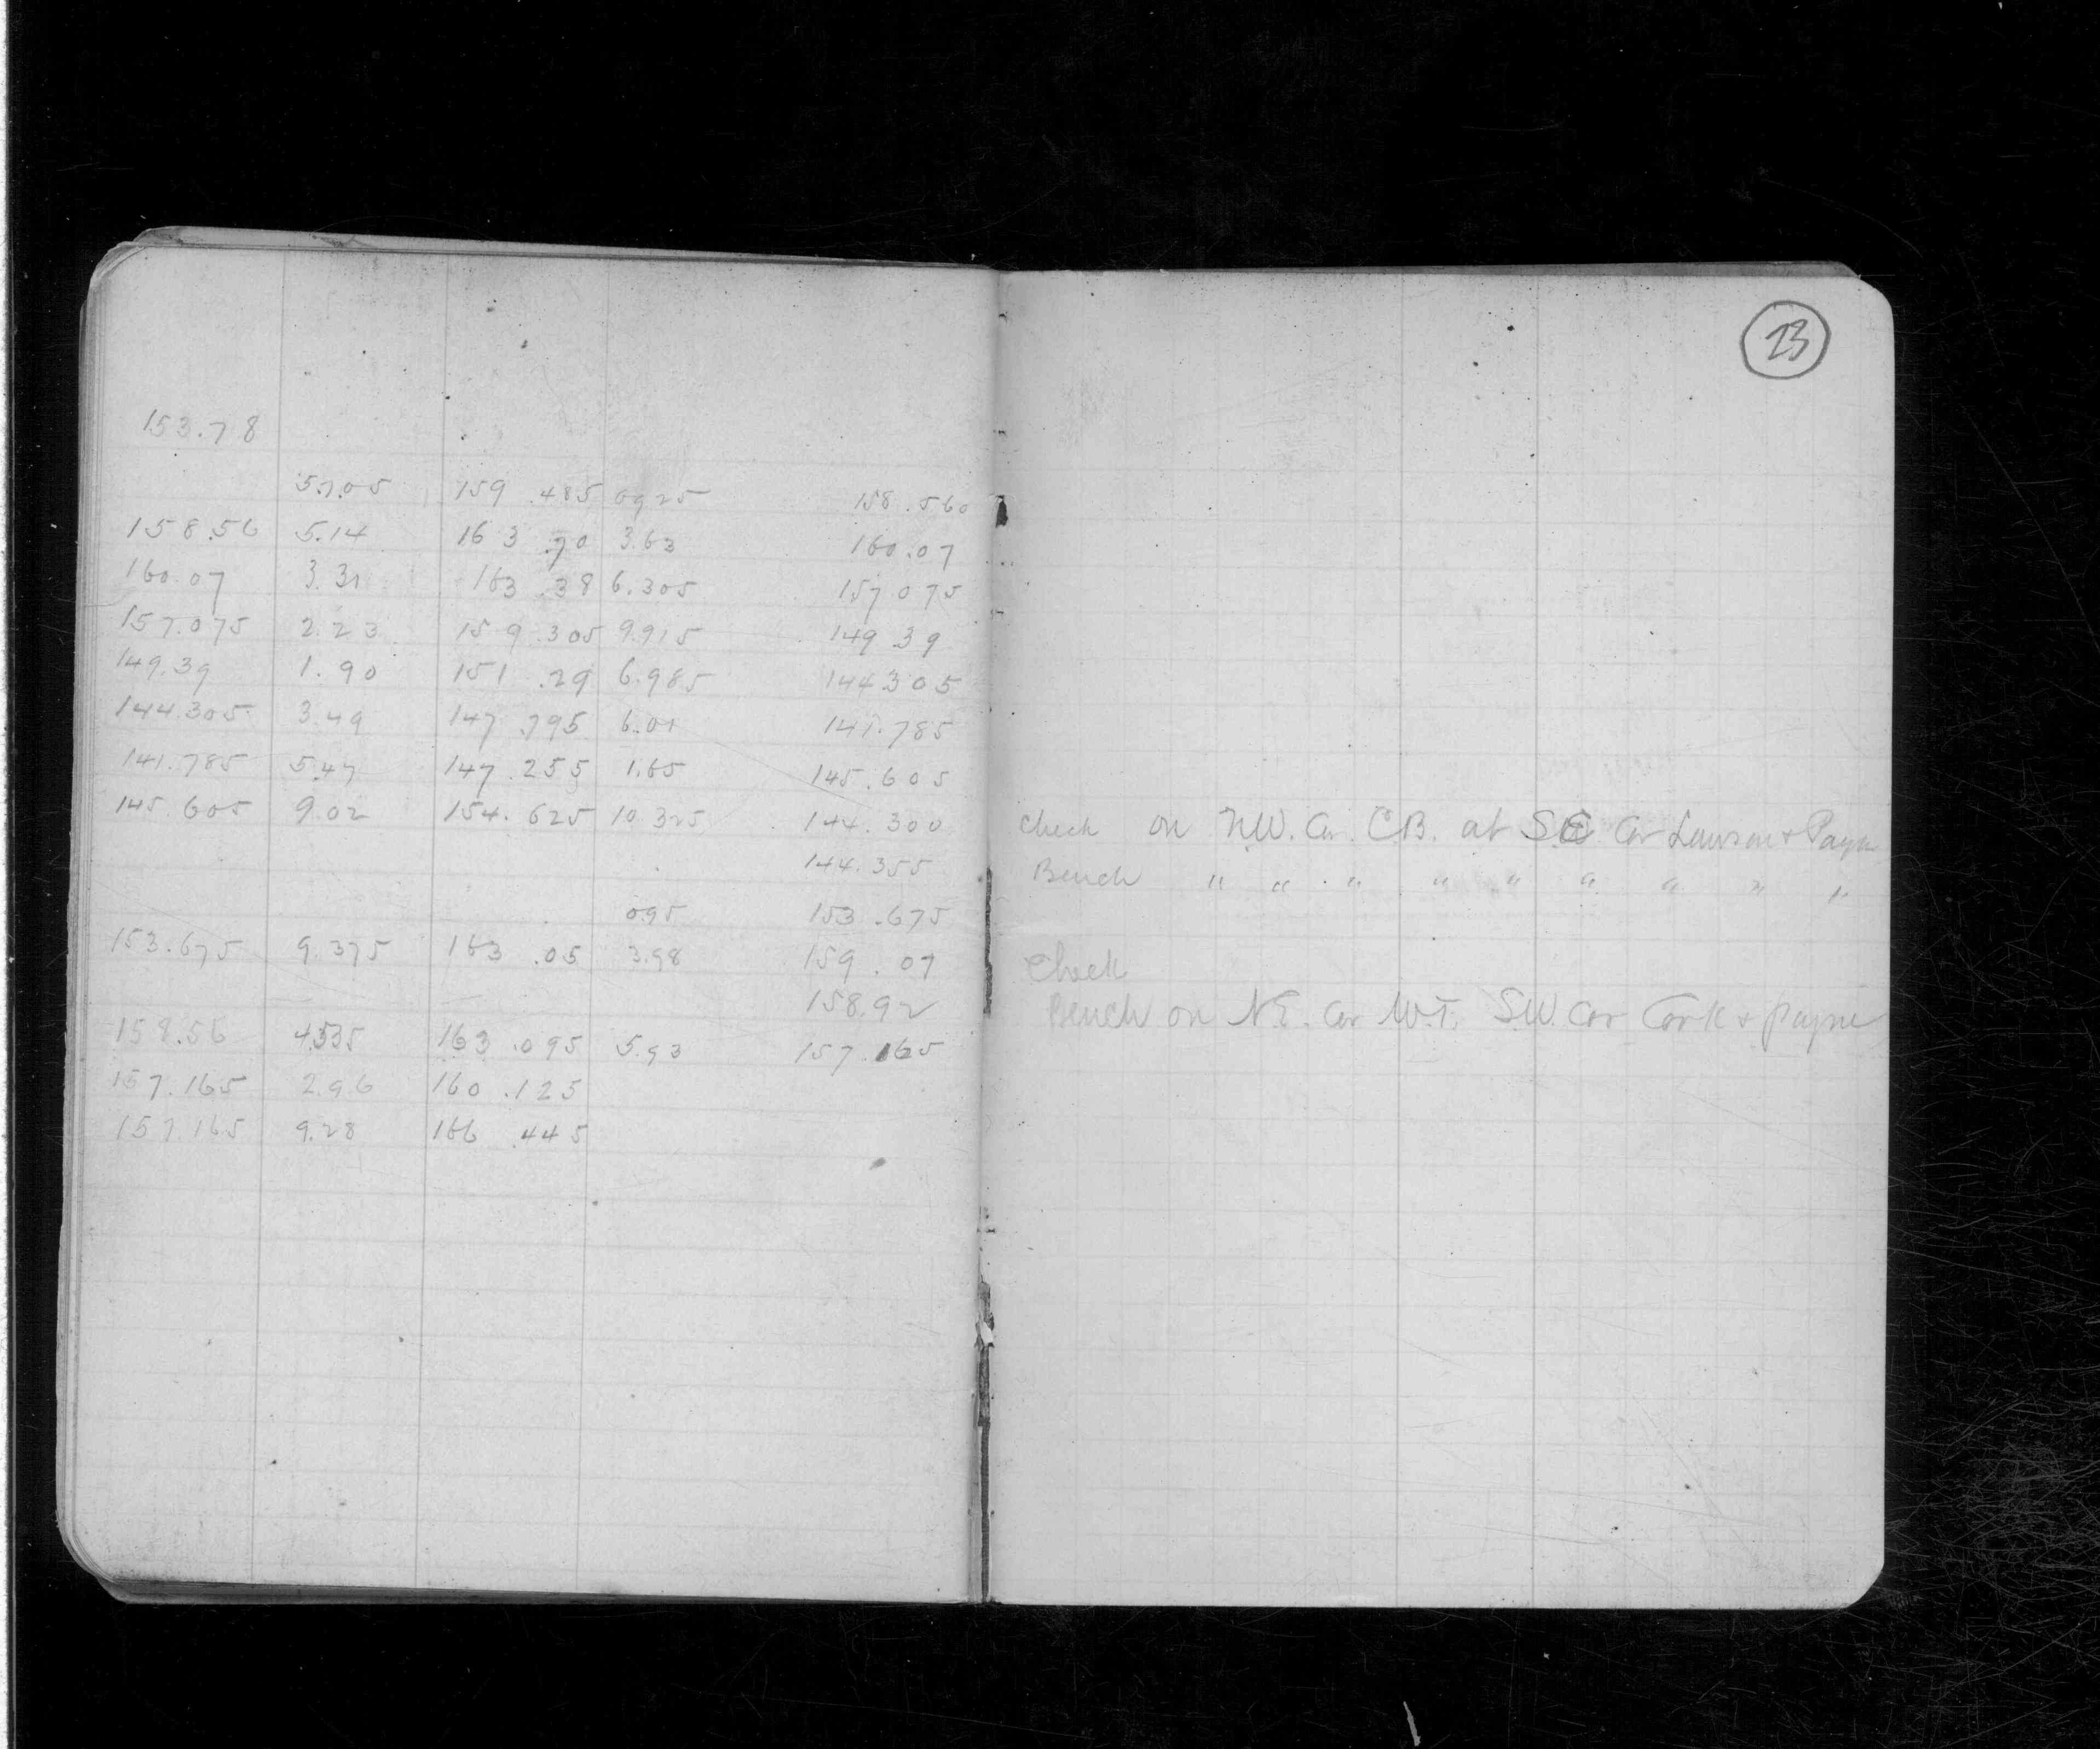 23
153.78
5.705 159 .485 0925 158 .560
158.56 5.14 163 .70 3.63 160.07
160.07 3.31 163 .38 6.305 157 075
157.075 2.23 159 .305 9.915 149 39
149.39 1.90 151 .29 6.985 144 305
144.305 3.49 147 .795 6.01 141.785
141.785 5.47 147 .255 1.65 145.605
145.605 9.02 154.625 10 325 144.300 Check on N.W. Cor. C.B. at S.E. Cor Lawson + Payne
144.355 Bench " " " " " " " " "
095 153 .675
153.675 9.375 163 .05 3.98 159 .07 Check
158.92 Bench on N.E. Cor W.T. S.W. Cor Cork + Payne
158.56 4.535 163 .095 5.93 157.165
157.165 2.96 160 .125
157.165 9.28 166 .445